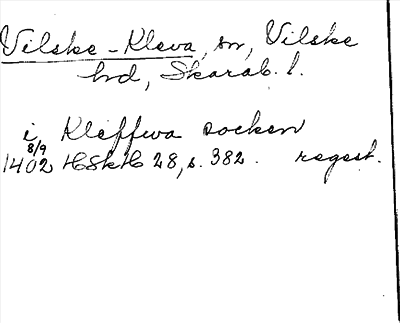 Vilske-Kleva, sn, Vilske
hd, Skarab. l.
i Kleffwa socken
1402 8/9 HSkH 28, s. 382. regest.